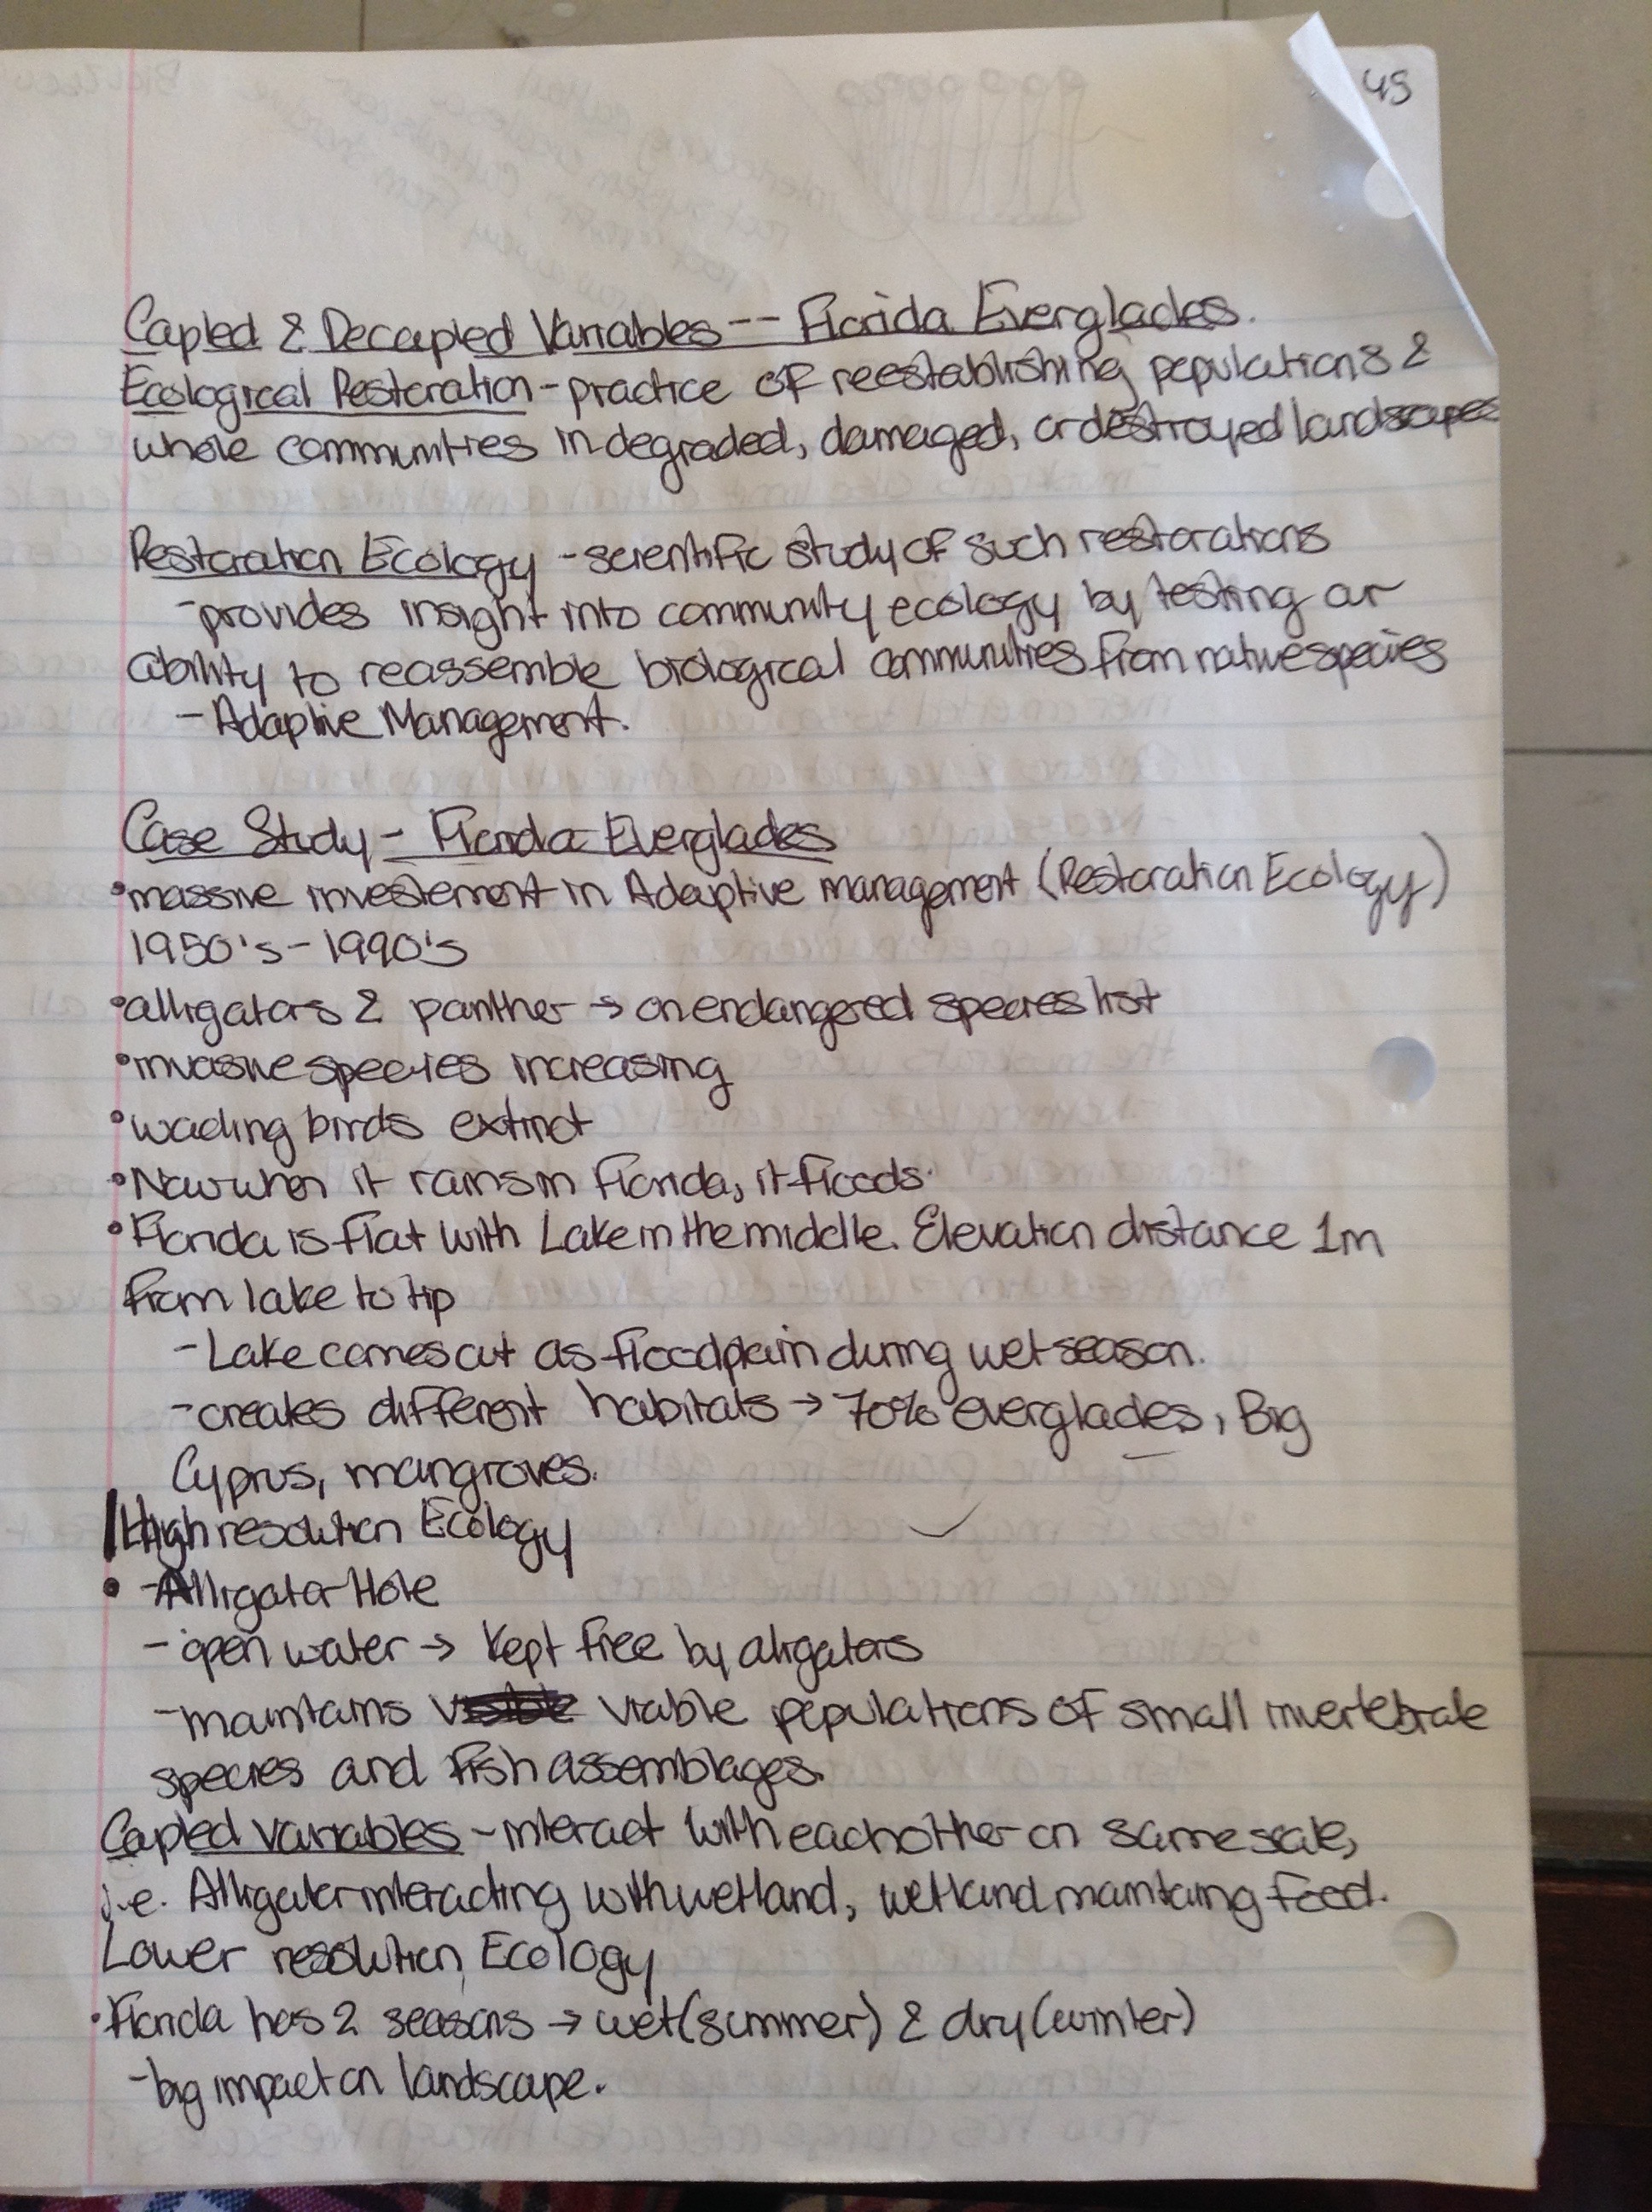 49
Coupled & Decoupled Variables -- Florida Everglades.
Ecological Restoration - practice of reestablishing populations &
whole communities in degraded, damaged, or destroyed landscapes
Restoration Ecology - scientific study of such restorations
- provides insight into community ecology by testing our
ability to reassemble biological communities from native species
- Adaptive Management.
Case Study - Florida Everglades
• massive investement in Adaptive management (Restoration Ecology)
1950's - 1990's
• alligators & panther → on endangered species list
• invasive species increasing
• wading birds extinct
• Now when it rains in Florida, it floods.
• Florida is flat with Lake in the middle. Elevation distance 1m
from lake to tip
- Lake comes out as floodplain during wet season.
- creates different habitats → 70% everglades, Big
Cyprus, mangroves.
High resolution Ecology
• - Alligator Hole
- open water → kept free by aligators
- maintains viable populations of small invertebrate
species and fish assemblages.
Coupled variables - interact with each other on same scale,
i.e. Alligator interacting with wetland, wetland maintaing food.
Lower resolution Ecology
• Florida has 2 seasons → wet (summer) & dry (winter)
- big impact on landscape.